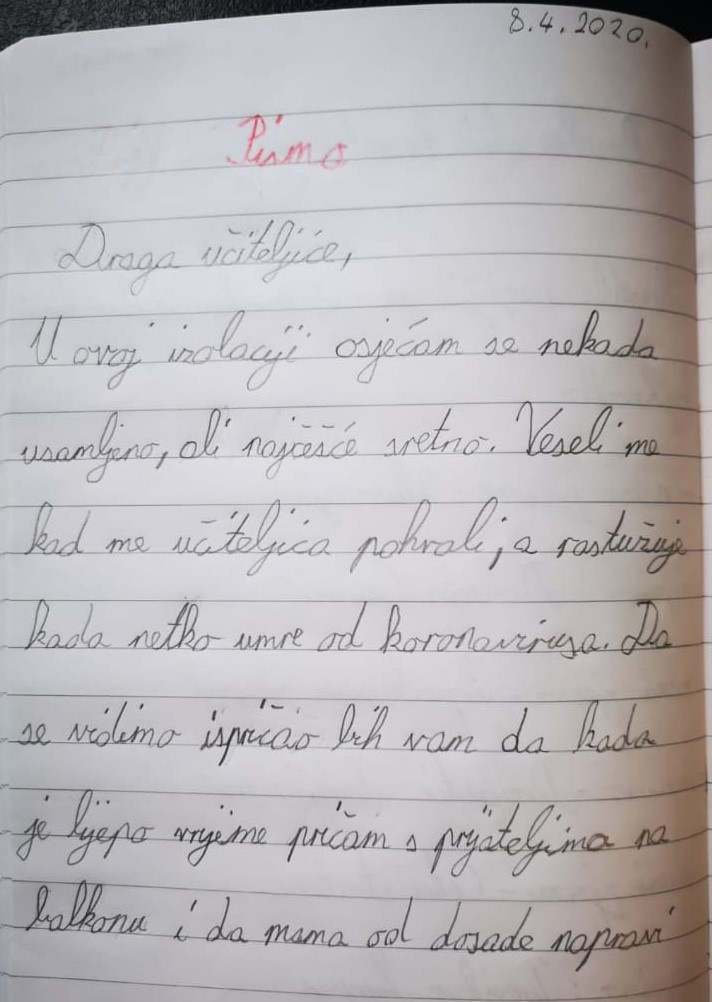 8.4.2020.
Pismo
Draga učiteljice,
U ovoj izolaciji osjećam se nekada
usamljeno, ali najčešće sretno. Veseli me
kad me učiteljica pohvali, a rastužuje
kada netko umre od koronavirusa. Da
se vidimo ispričao bih vam da kada
je lijepo vrijeme pričam s prijateljima na
balkonu i da mama od dosade napravi